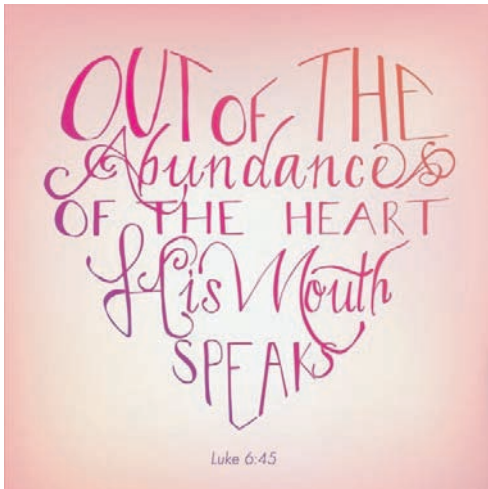 OUT OF THE
Abundance
OF THE HEART
His Mouth
SPEAKS
Luke 6:45